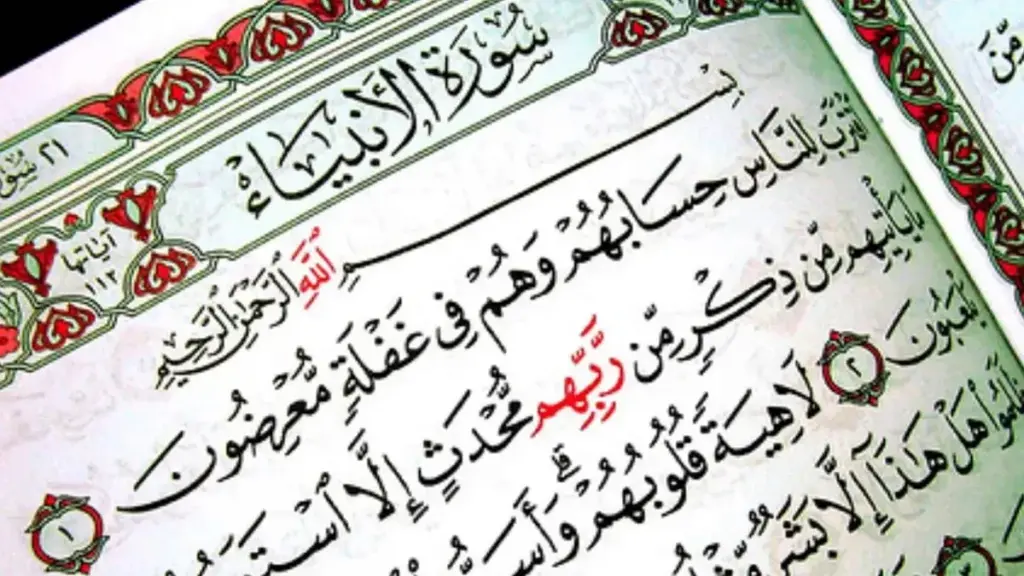 مِّنَ
سُورَةُ الأَنْبِيَاءِ
٢١
آيَاتُهَا
١١٢
بِسْمِ ٱللَّهِ ٱلرَّحْمَٰنِ ٱلرَّحِيمِ
لِلنَّاسِ حِسَابُهُمْ وَهُمْ فِى غَفْلَةٍ مُّعْرِضُونَ ١
يَأْتِيهِم مِّن ذِكْرٍ مِّن رَّبِّهِم مُّحْدَثٍ إِلَّا
يَلْعَبُونَ ٢ لَاهِيَةً قُلُوبُهُمْ
هَلْ هَٰذَآ إِلَّا بَشَرٌ